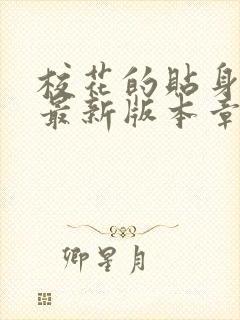 校花的贴身
最新版本章
卿星月